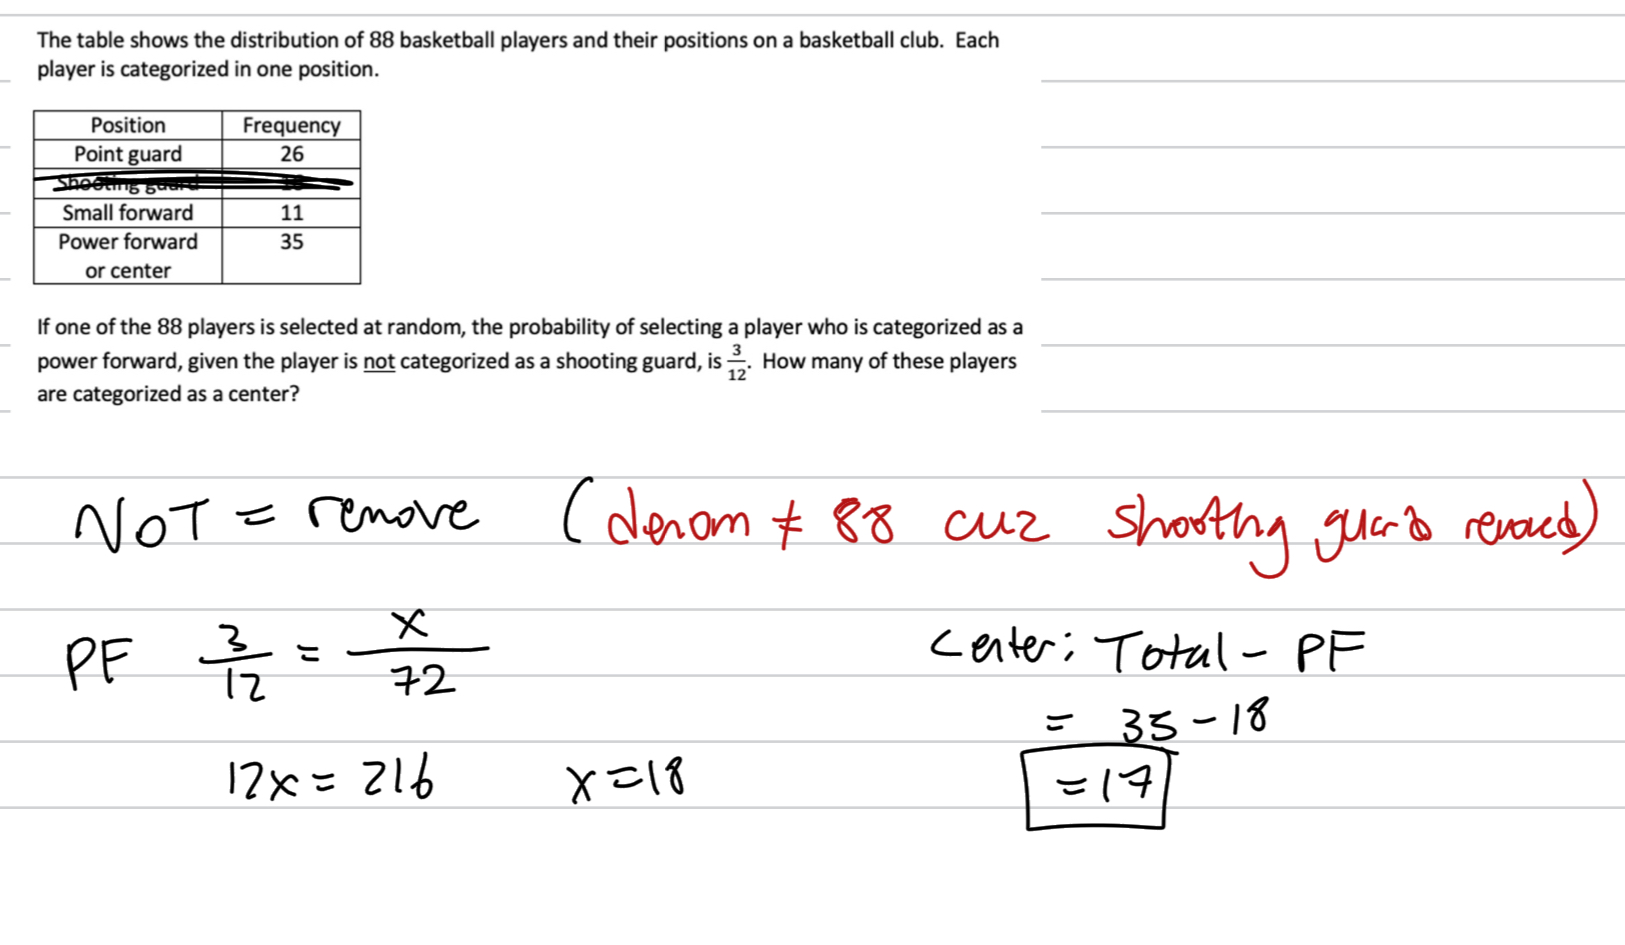 The table shows the distribution of 88 basketball players and their positions on a basketball club. Each
player is categorized in one position.
Position Frequency
Point guard 26
Shooting guard
Small forward 11
Power forward 35
or center
If one of the 88 players is selected at random, the probability of selecting a player who is categorized as a
power forward, given the player is not categorized as a shooting guard, is 3/12. How many of these players
are categorized as a center?
NOT = remove (denom ≠ 88 cuz shooting guard removed)
PF 3/12 = x/72
12x = 216 x = 18
Center: Total - PF
= 35 - 18
= 17